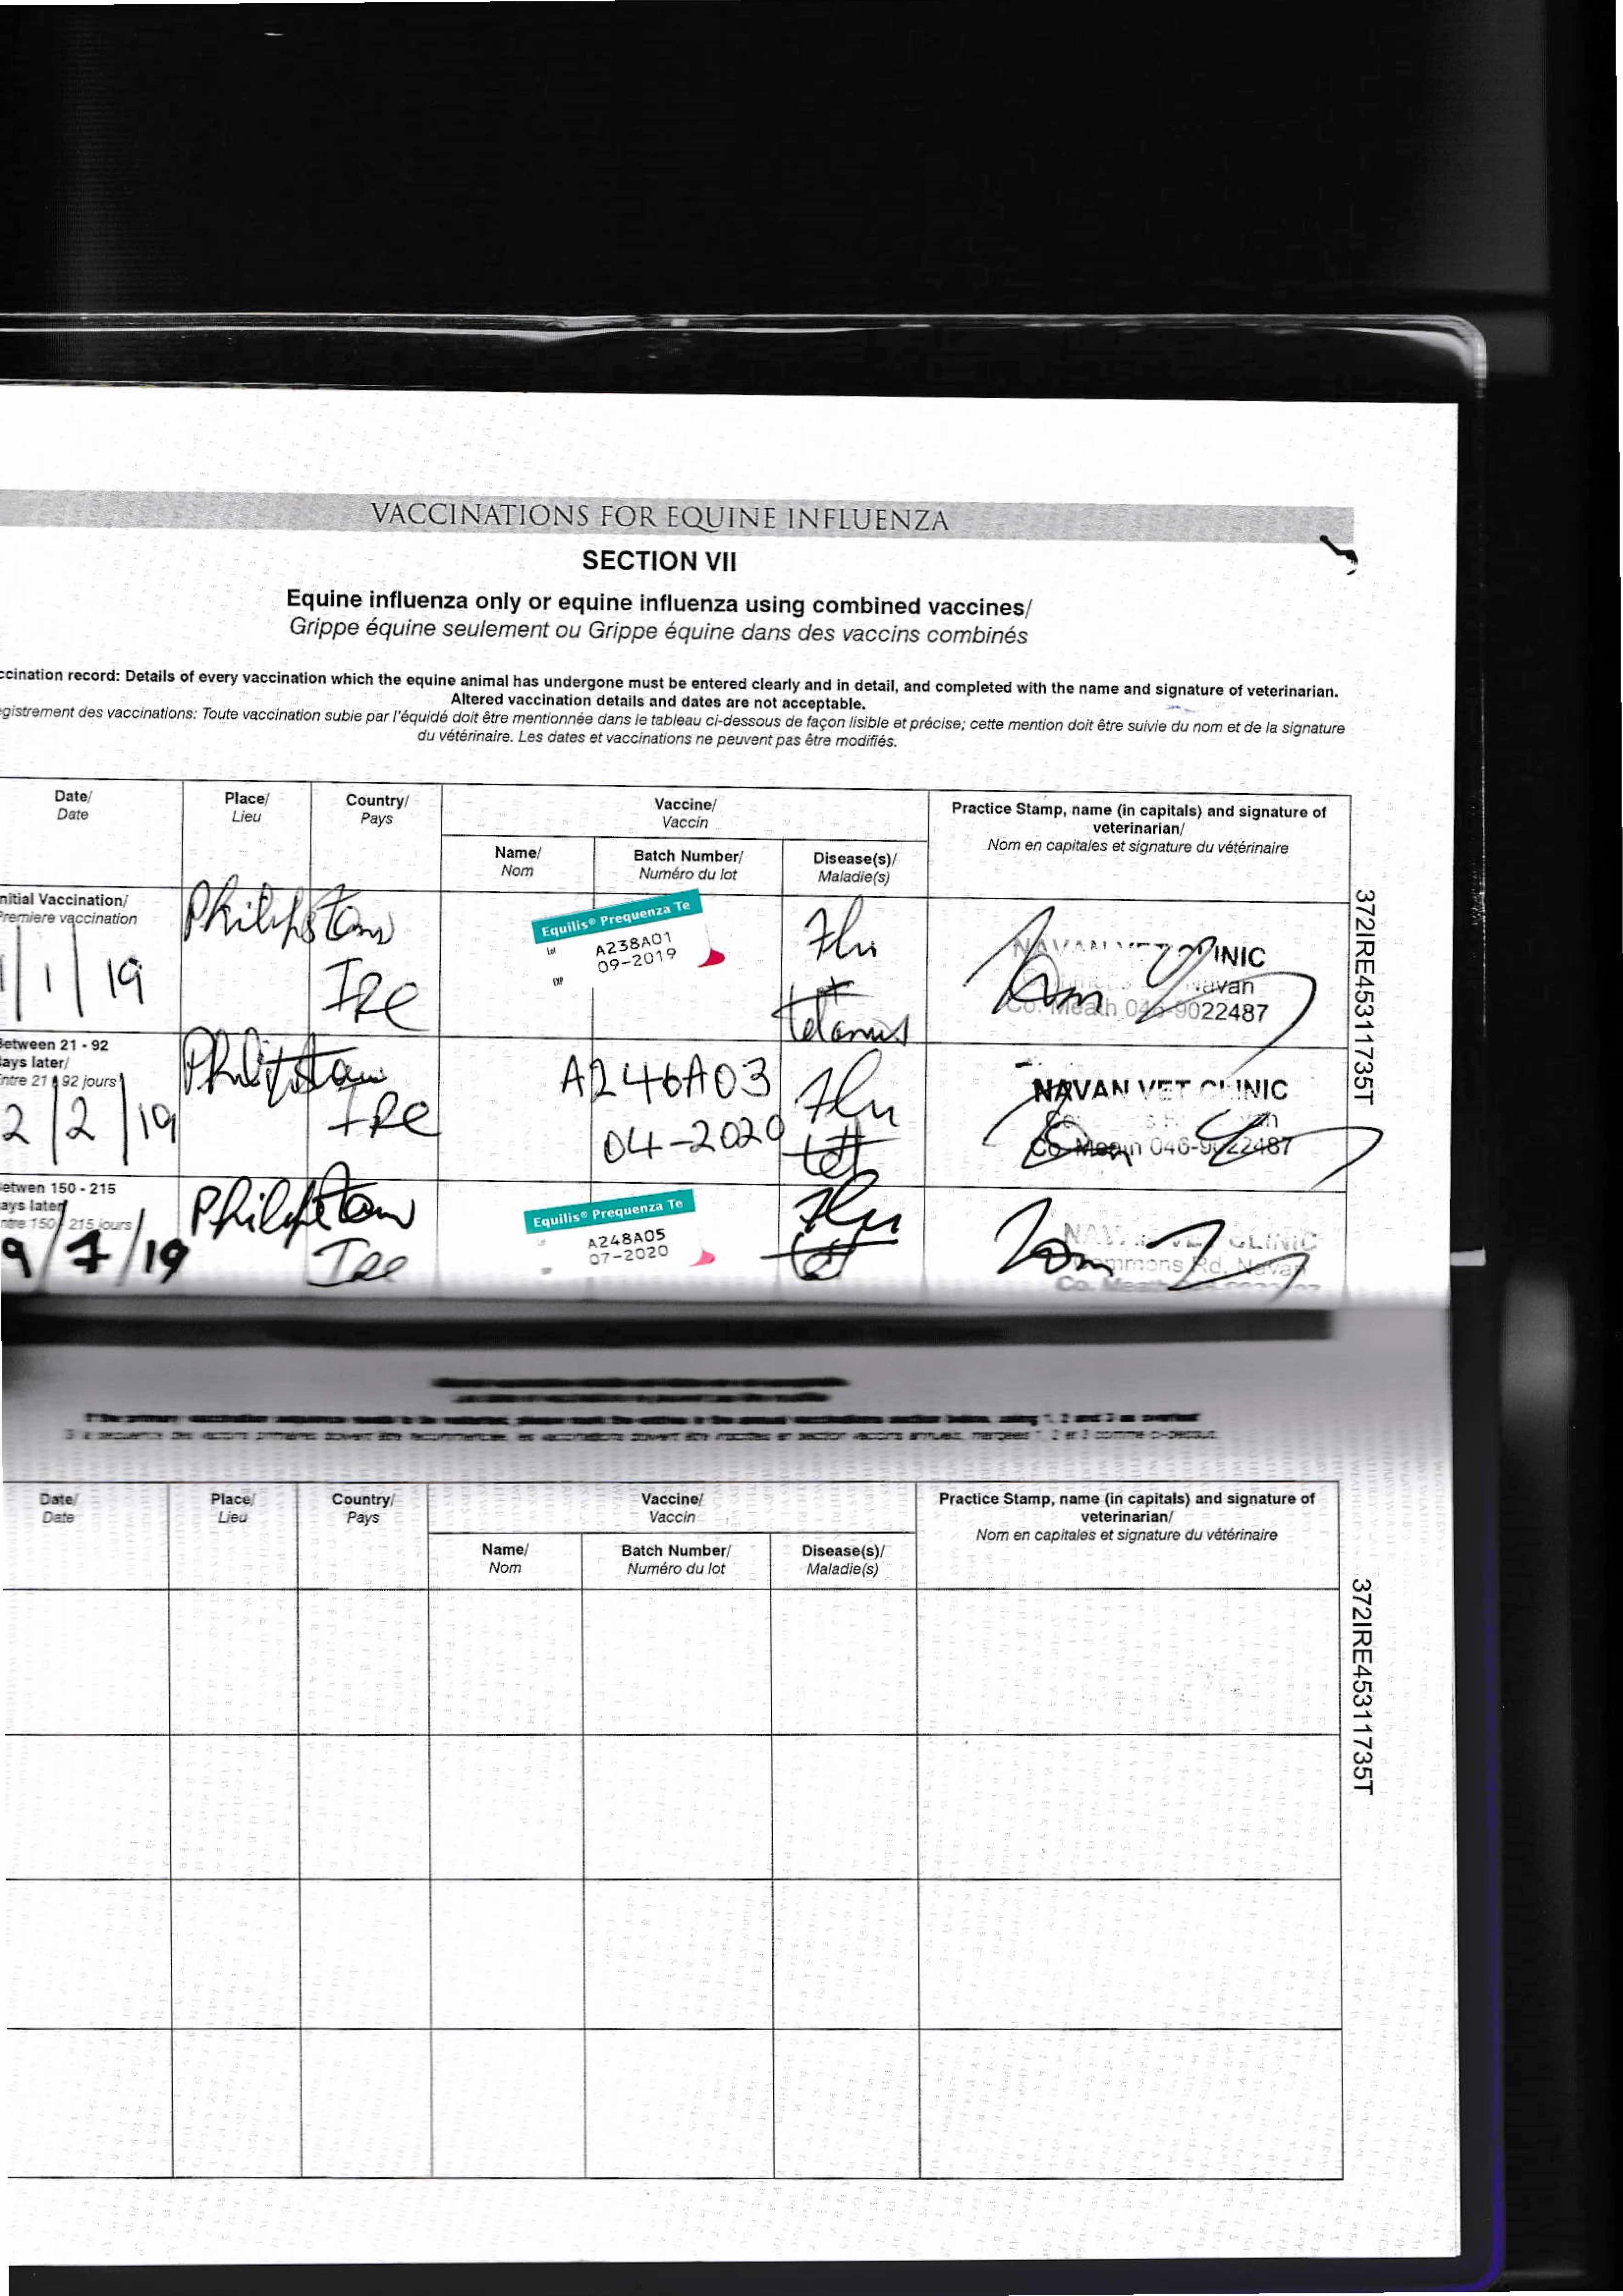 VACCINATIONS FOR EQUINE INFLUENZA
SECTION VII
Equine influenza only or equine influenza using combined vaccines/
Grippe équine seulement ou Grippe équine dans des vaccins combinés
ccination record: Details of every vaccination which the equine animal has undergone must be entered clearly and in detail, and completed with the name and signature of veterinarian.
Altered vaccination details and dates are not acceptable.
gistrement des vaccinations: Toute vaccination subie par l'équidé doit être mentionnée dans le tableau ci-dessous de façon lisible et précise; cette mention doit être suivie du nom et de la signature
du vétérinaire. Les dates et vaccinations ne peuvent pas être modifiés.
Date/ Place/ Country/ Vaccine/ Practice Stamp, name (in capitals) and signature of
Date Lieu Pays Vaccin veterinarian/
Nom en capitales et signature du vétérinaire
Name/ Batch Number/ Disease(s)/
Nom Numéro du lot Maladie(s)
nitial Vaccination/
Premiere vaccination
1/1/19 Philipstown IRE
Equilis® Prequenza Te
Lot A238A01
EXP 09-2019
Flu
tetanus
NAVAN VET CLINIC
Navan
Co. Meath 046-9022487
Between 21 - 92
ays later/
ntre 21 92 jours
2/2/19 Philipstown IRE
A246A03
04-2020
Flu
tet
NAVAN VET CLINIC
Co. Meath 046-9022487
etwen 150 - 215
ays later/
ntre 150 215 jours
9/7/19 Philipstown Ire
Equilis® Prequenza Te
A248A05
07-2020
Flu
tet
NAVAN VET CLINIC
Commons Rd, Navan
Co. Meath
372IRE45311735T
If the primary vaccination sequence needs to be restarted, please mark the entries in the annual vaccinations section below, using 1, 2 and 3 as overleaf
Date/ Place/ Country/ Vaccine/ Practice Stamp, name (in capitals) and signature of
Date Lieu Pays Vaccin veterinarian/
Nom en capitales et signature du vétérinaire
Name/ Batch Number/ Disease(s)/
Nom Numéro du lot Maladie(s)
372IRE45311735T